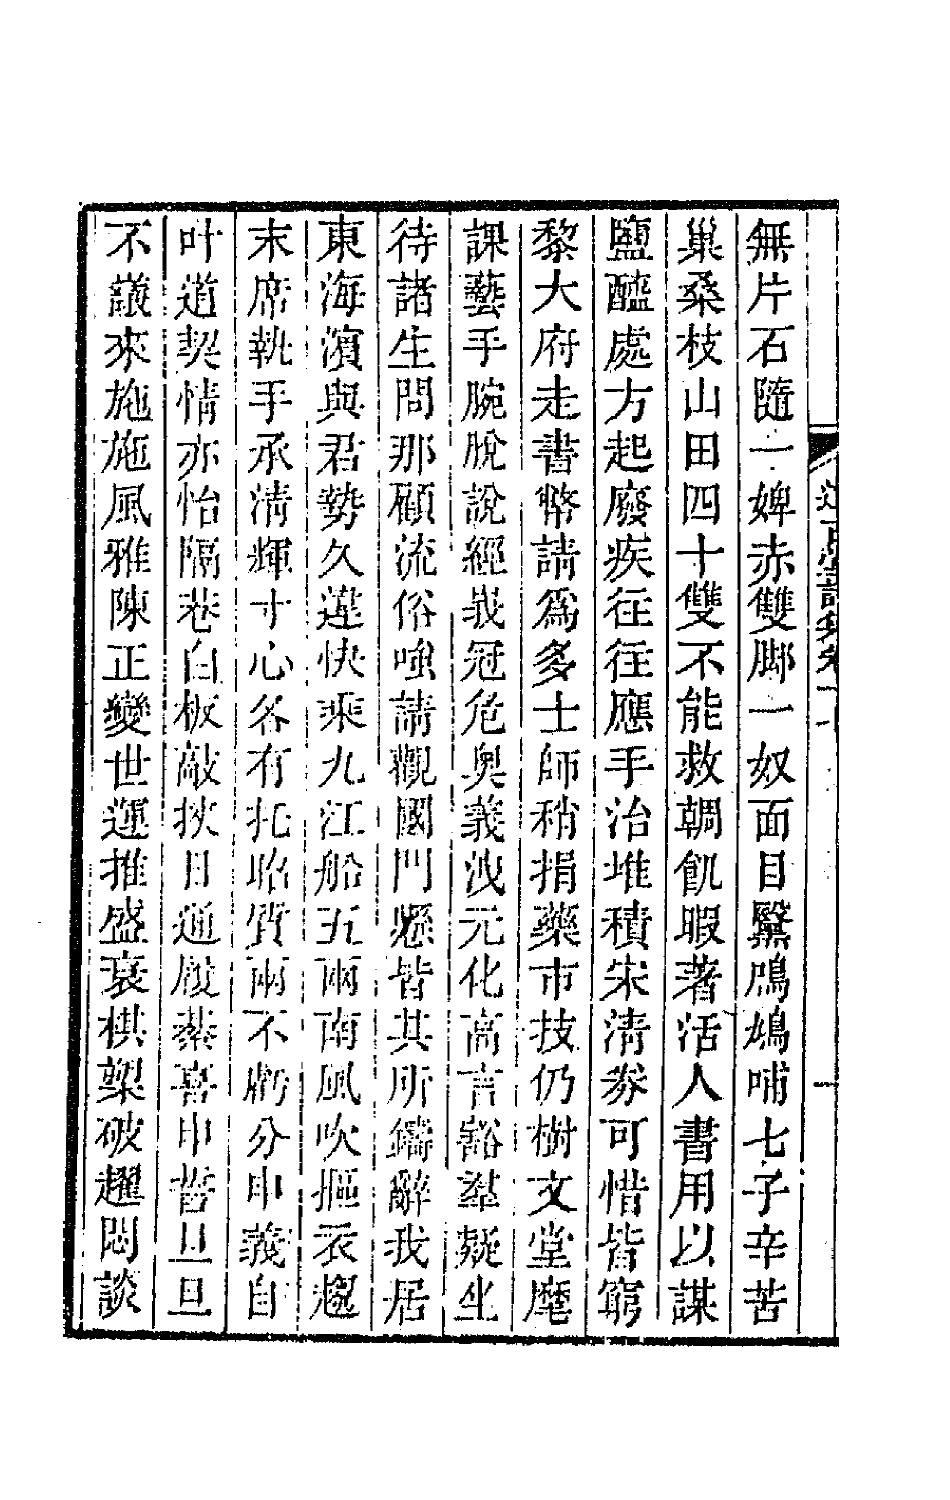 無片石隨一婢赤雙脚一奴面目黳鳲鳩哺七子辛苦
巢桑枝山田四十雙不能救朝飢暇著活人書用以謀
鹽醯處方起廢疾往往應手治堆積宋清券可惜皆窮
黎大府走書幣請爲多士師稍捐藥市技仍樹文堂麾
課藝手腕脫說經峩冠危奧義洩元化高言豁羣疑坐
待諸生問那顧流俗嗤請觀國門懸皆其所鑄辭我居
東海濱與君勢久違快乘九江船五兩南風吹摳衣趨
末席執手承清輝寸心各有托昭質兩不虧分申義自
叶道契情亦怡隔巷白板敲挾日通履綦喜申晢旦旦
不議來施施風雅陳正變世運推盛衰棋槊破躍悶談